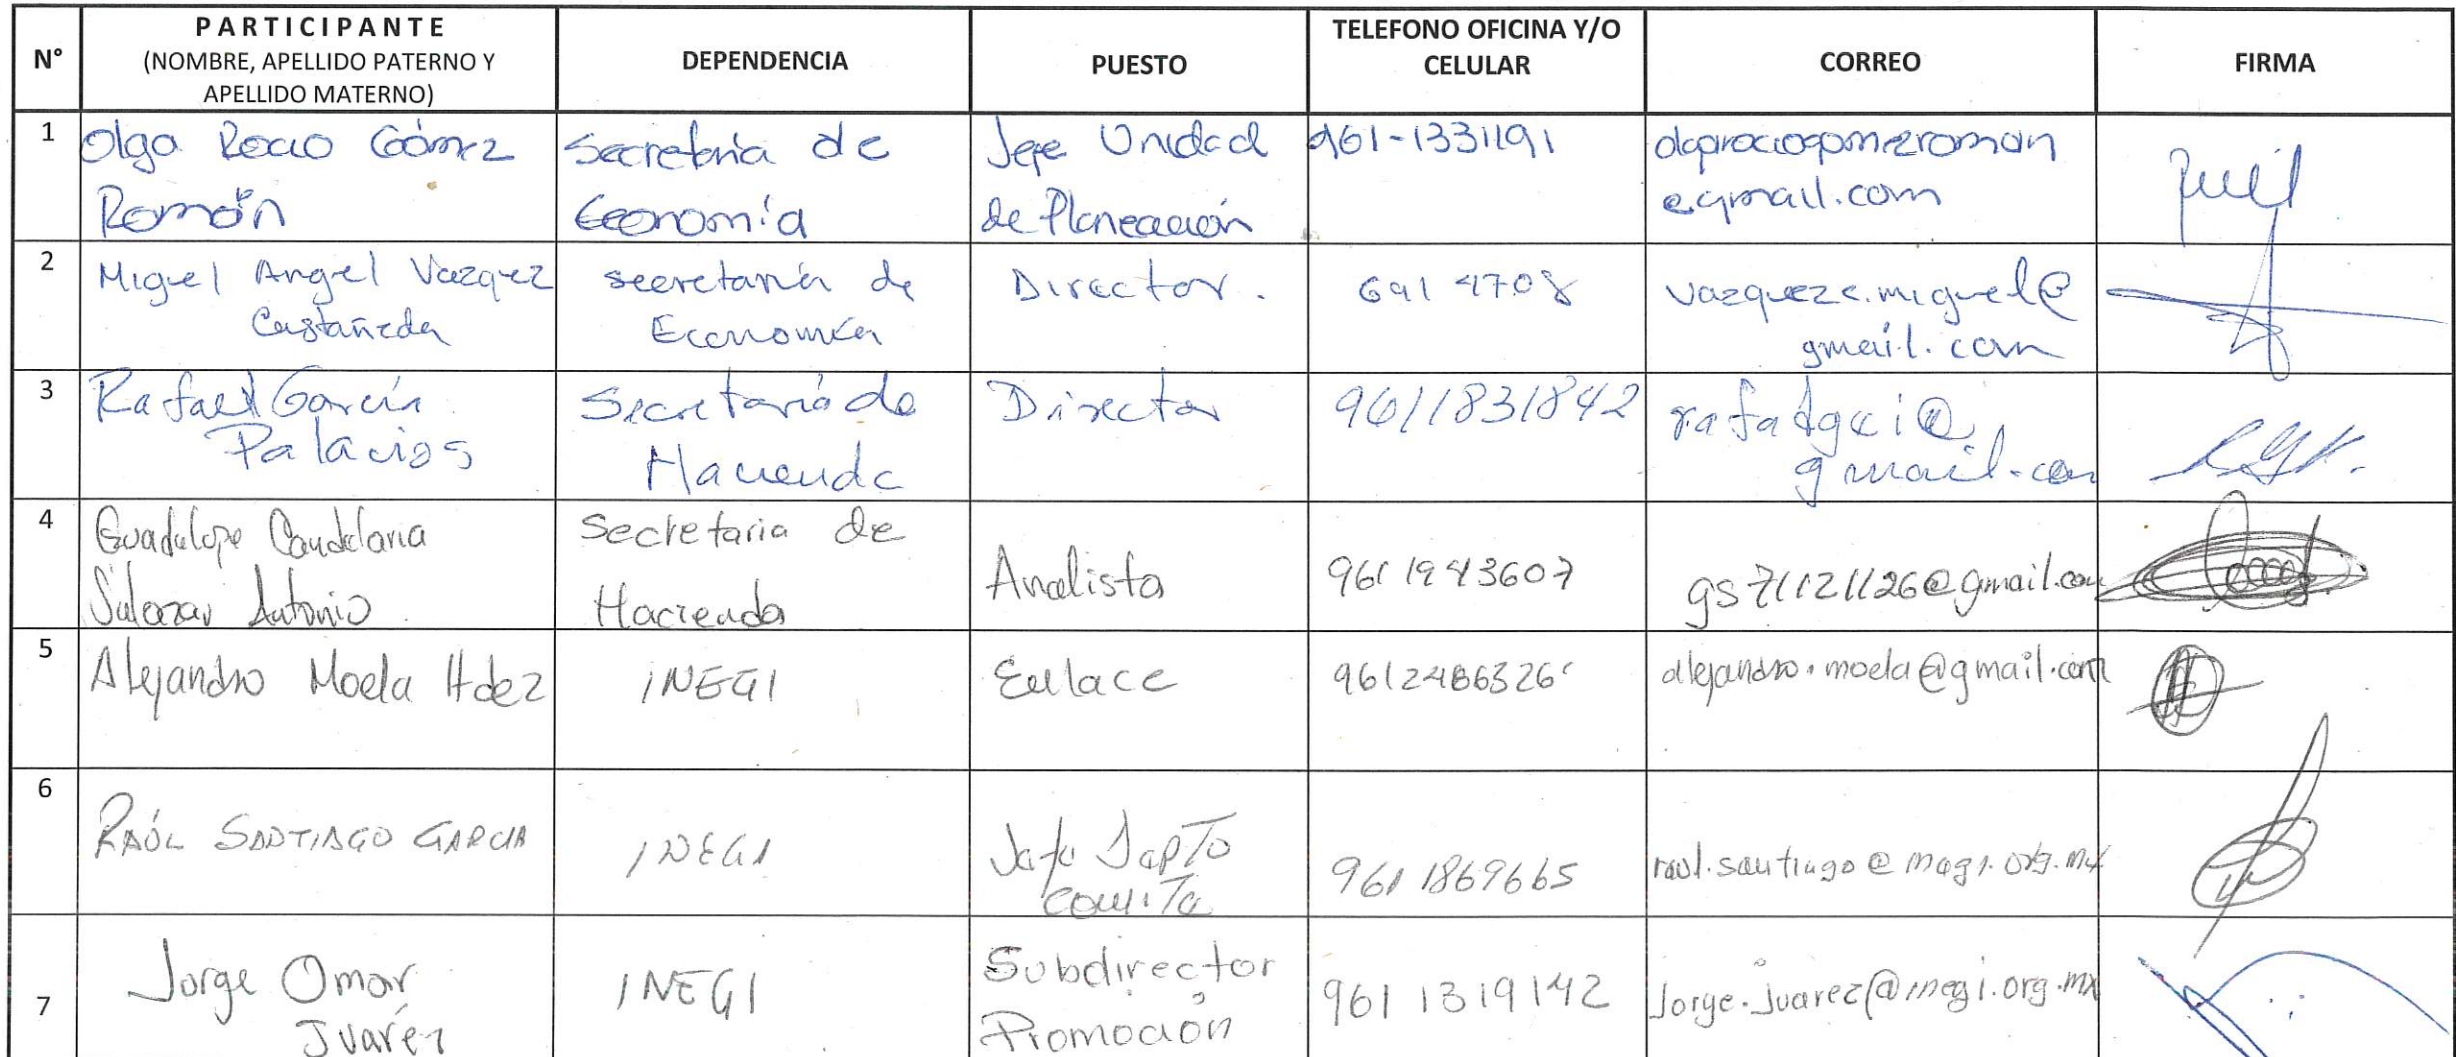 N°
PARTICIPANTE
(NOMBRE, APELLIDO PATERNO Y
APELLIDO MATERNO)
DEPENDENCIA
PUESTO
TELEFONO OFICINA Y/O
CELULAR
CORREO
FIRMA
1
Olga Rocio Gómez
Román
Secretaría de
Economía
Jefe Unidad
de Planeación
961-1331191
olgarociogomezroman
@gmail.com
2
Miguel Angel Vazquez
Castañeda
secretaría de
Economía
Director.
691 4708
vazqueze.miguel@
gmail.com
3
Rafael García
Palacios
Secretaría de
Hacienda
Director
9611831842
gmail.com
4
Guadalupe Candelaria
Salazar Antonio
Secretaria de
Hacienda
Analista
961 1943607
gs71121126@gmail.com
5
Alejandro Moela Hdez
INEGI
Enlace
9612486326
alejandro.moela@gmail.com
6
RAÚL SANTIAGO GARCIA
INEGI
Jefe Depto
961 1869665
raul.santiago@inegi.org.mx
7
Jorge Omar
Juárez
INEGI
Subdirector
Promoción
961 1319142
Jorge.juarez@inegi.org.mx